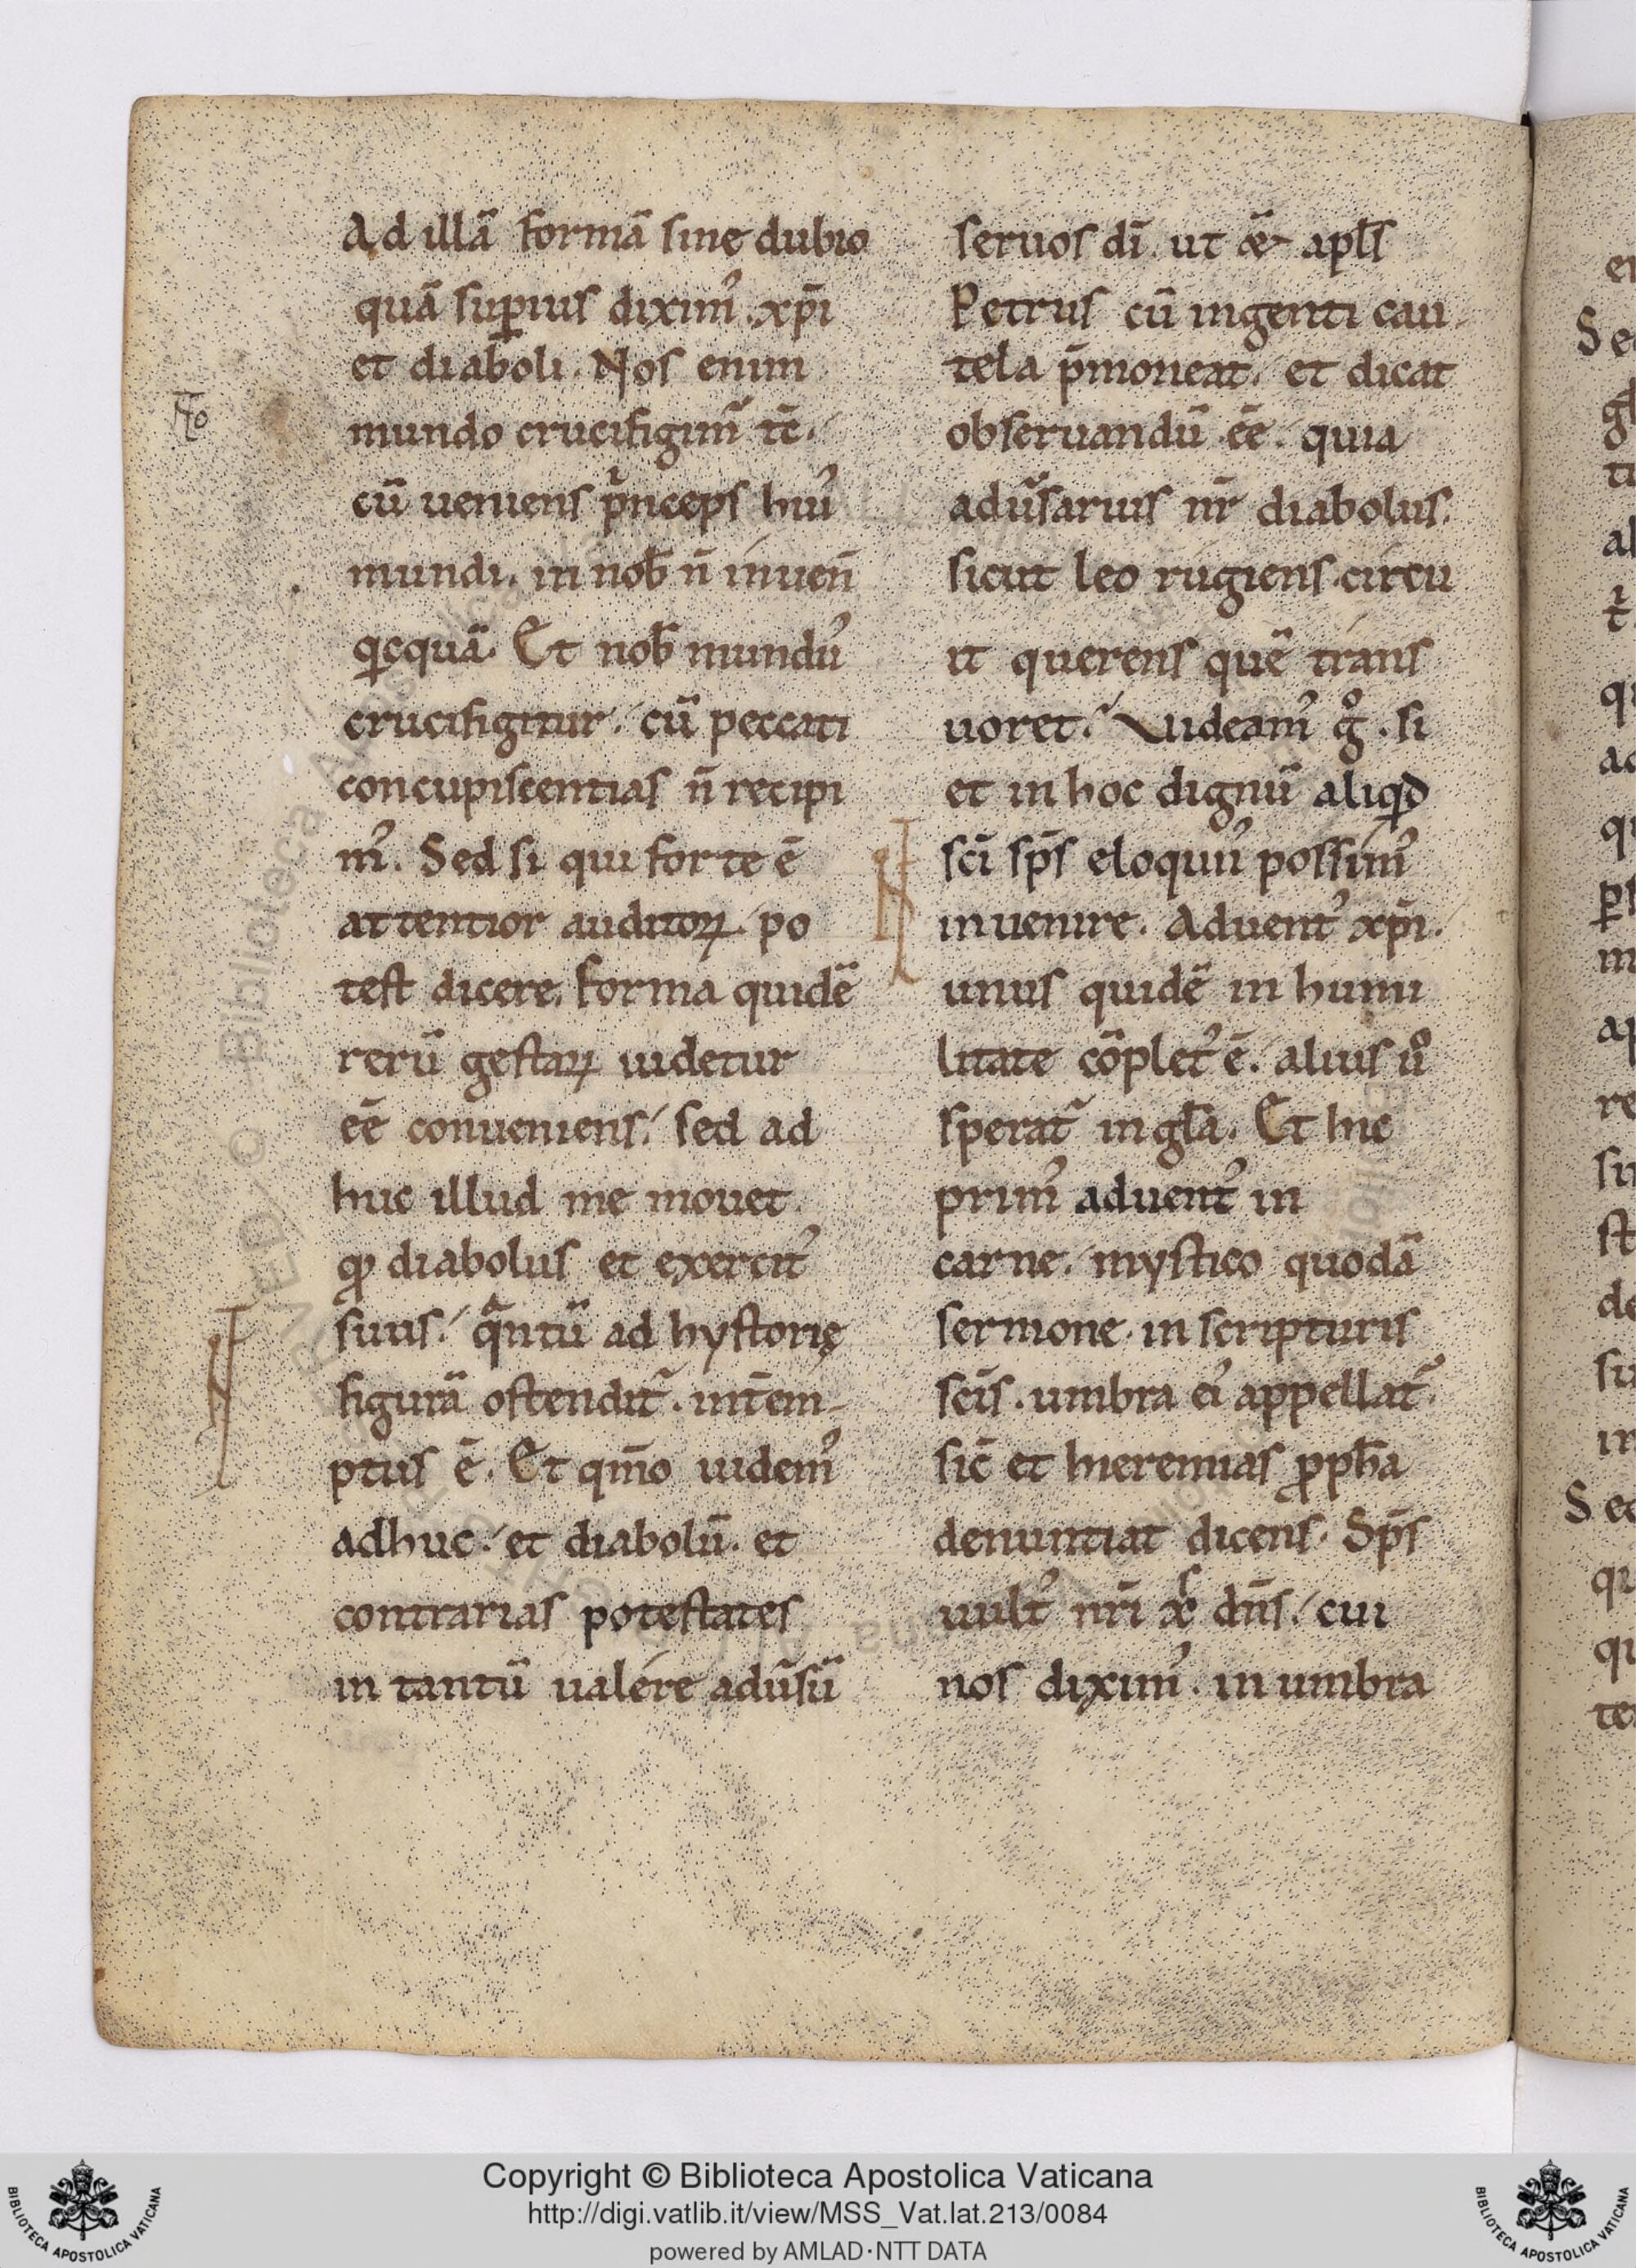 Ad illā formā sine dubio
quā suꝑius diximꝰ. xp̄i
et diaboli. Nos enim
mundo crucifigim᷑ tc̄.
cū ueniens p̍nceps huiꝰ
mundi. in nob̄ n̄ inuen̄
qicquā. Et nob̄ mundꝰ
crucifigitur. cū peccati
concupiscentias n̄ recipi
mꝰ. Sed si qui forte ē
attentior auditoꝝ. po
test dicere. forma quidē
rerū gestaꝝ uidetur
eē conueniens. sed ad
huc illud me mouet.
qꝫ diabolus et exercitꝰ
suus. qntū ad hystorię
figurā ostendit᷑. intēm-
ptus ē. Et qm̄o uidemꝰ
adhuc. et diabolū. et
contrarias potestates
in tantū ualere adūsū
seruos dī. ut & apl̄s
Petrus cū ingenti cau
tela p̄moneat. et dicat
obseruandū eē. quia
adūsarius nr̄ diabolus.
sicut leo rugiens circu
it querens quē trans
uoret. Videamꝰ gͦ. si
et in hoc dignū aliqd
sc̄i sp̄s eloquiꝰ possimꝰ
inuenire. Aduentꝰ xp̄i.
unus quidē in humi
litate cōpletꝰ ē. alius uͦ
sperat᷑ in gl̄a. Et hic
primꝰ aduentꝰ in
carne. mystico quodā
sermone. in scripturis
sc̄is. umbra eiꝰ appellat᷑
sic̄ et hieremias ꝓph̄a
denuntiat dicens. Sp̄s
uultꝰ nr̄i xp̄s dn̄s. cui
nos diximꝰ. in umbra
Copyright © Biblioteca Apostolica Vaticana
http://digi.vatlib.it/view/MSS_Vat.lat.213/0084
powered by AMLAD·NTT DATA
BIBLIOTECA APOSTOLICA VATICANA
BIBLIOTECA APOSTOLICA VATICANA